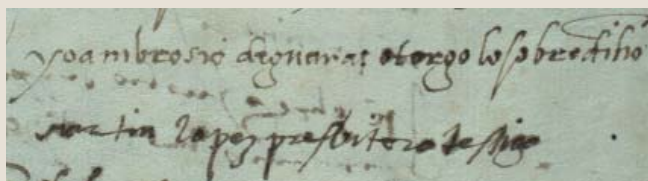 yo ambrosio deguaras otorgo lo sobre dicho
martin lopez presbitero testigo